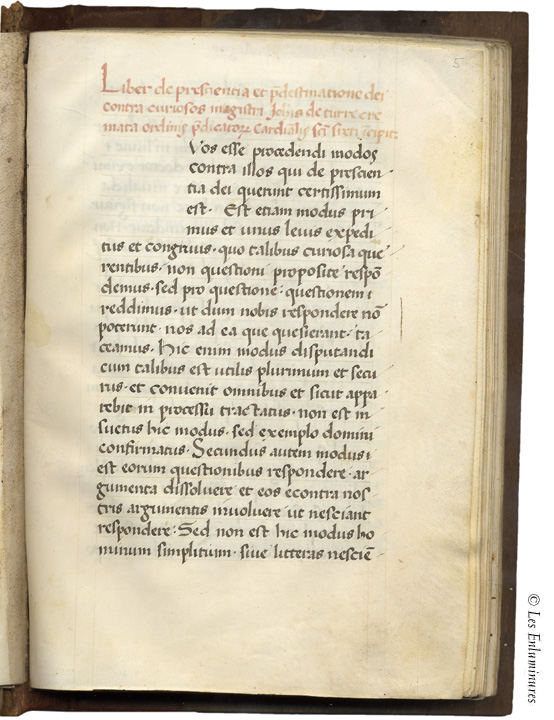 5
Liber de prescientia et p̄destinatione dei
contra curiosos magistri Joħis de turre cre
mata ordinis p̄dicatorꝝ Cardīalis sc̄ti sixti īcipit
Vos esse procedendi modos
contra illos qui de prescien
tia dei querunt certissimum
est · Est etiam modus pri
mus et unus levis expedi
tus et congruus · quo talibus curiosa que
rentibus · non questioni proposite respō
demus · sed pro questione · questionem i
reddimus · ut dum nobis respondere nō
poterunt · nos ad ea que quesierant · ta
ceamus · hic enim modus disputandi
cum talibus est utilis plurimum et secu
rus · et convenit omnibus et sicut appa
rebit in processu tractatus · non est in
suetus hic modus · sed exemplo domini
confirmatus · Secundus autem modus i
est eorum questionibus respondere · ar
gumenta dissolvere et eos econtra nos
tris argumentis involvere ut nesciant
respondere · Sed non est hic modus ho
minum simplitium · sive litteras nesciē
© Les Enluminures